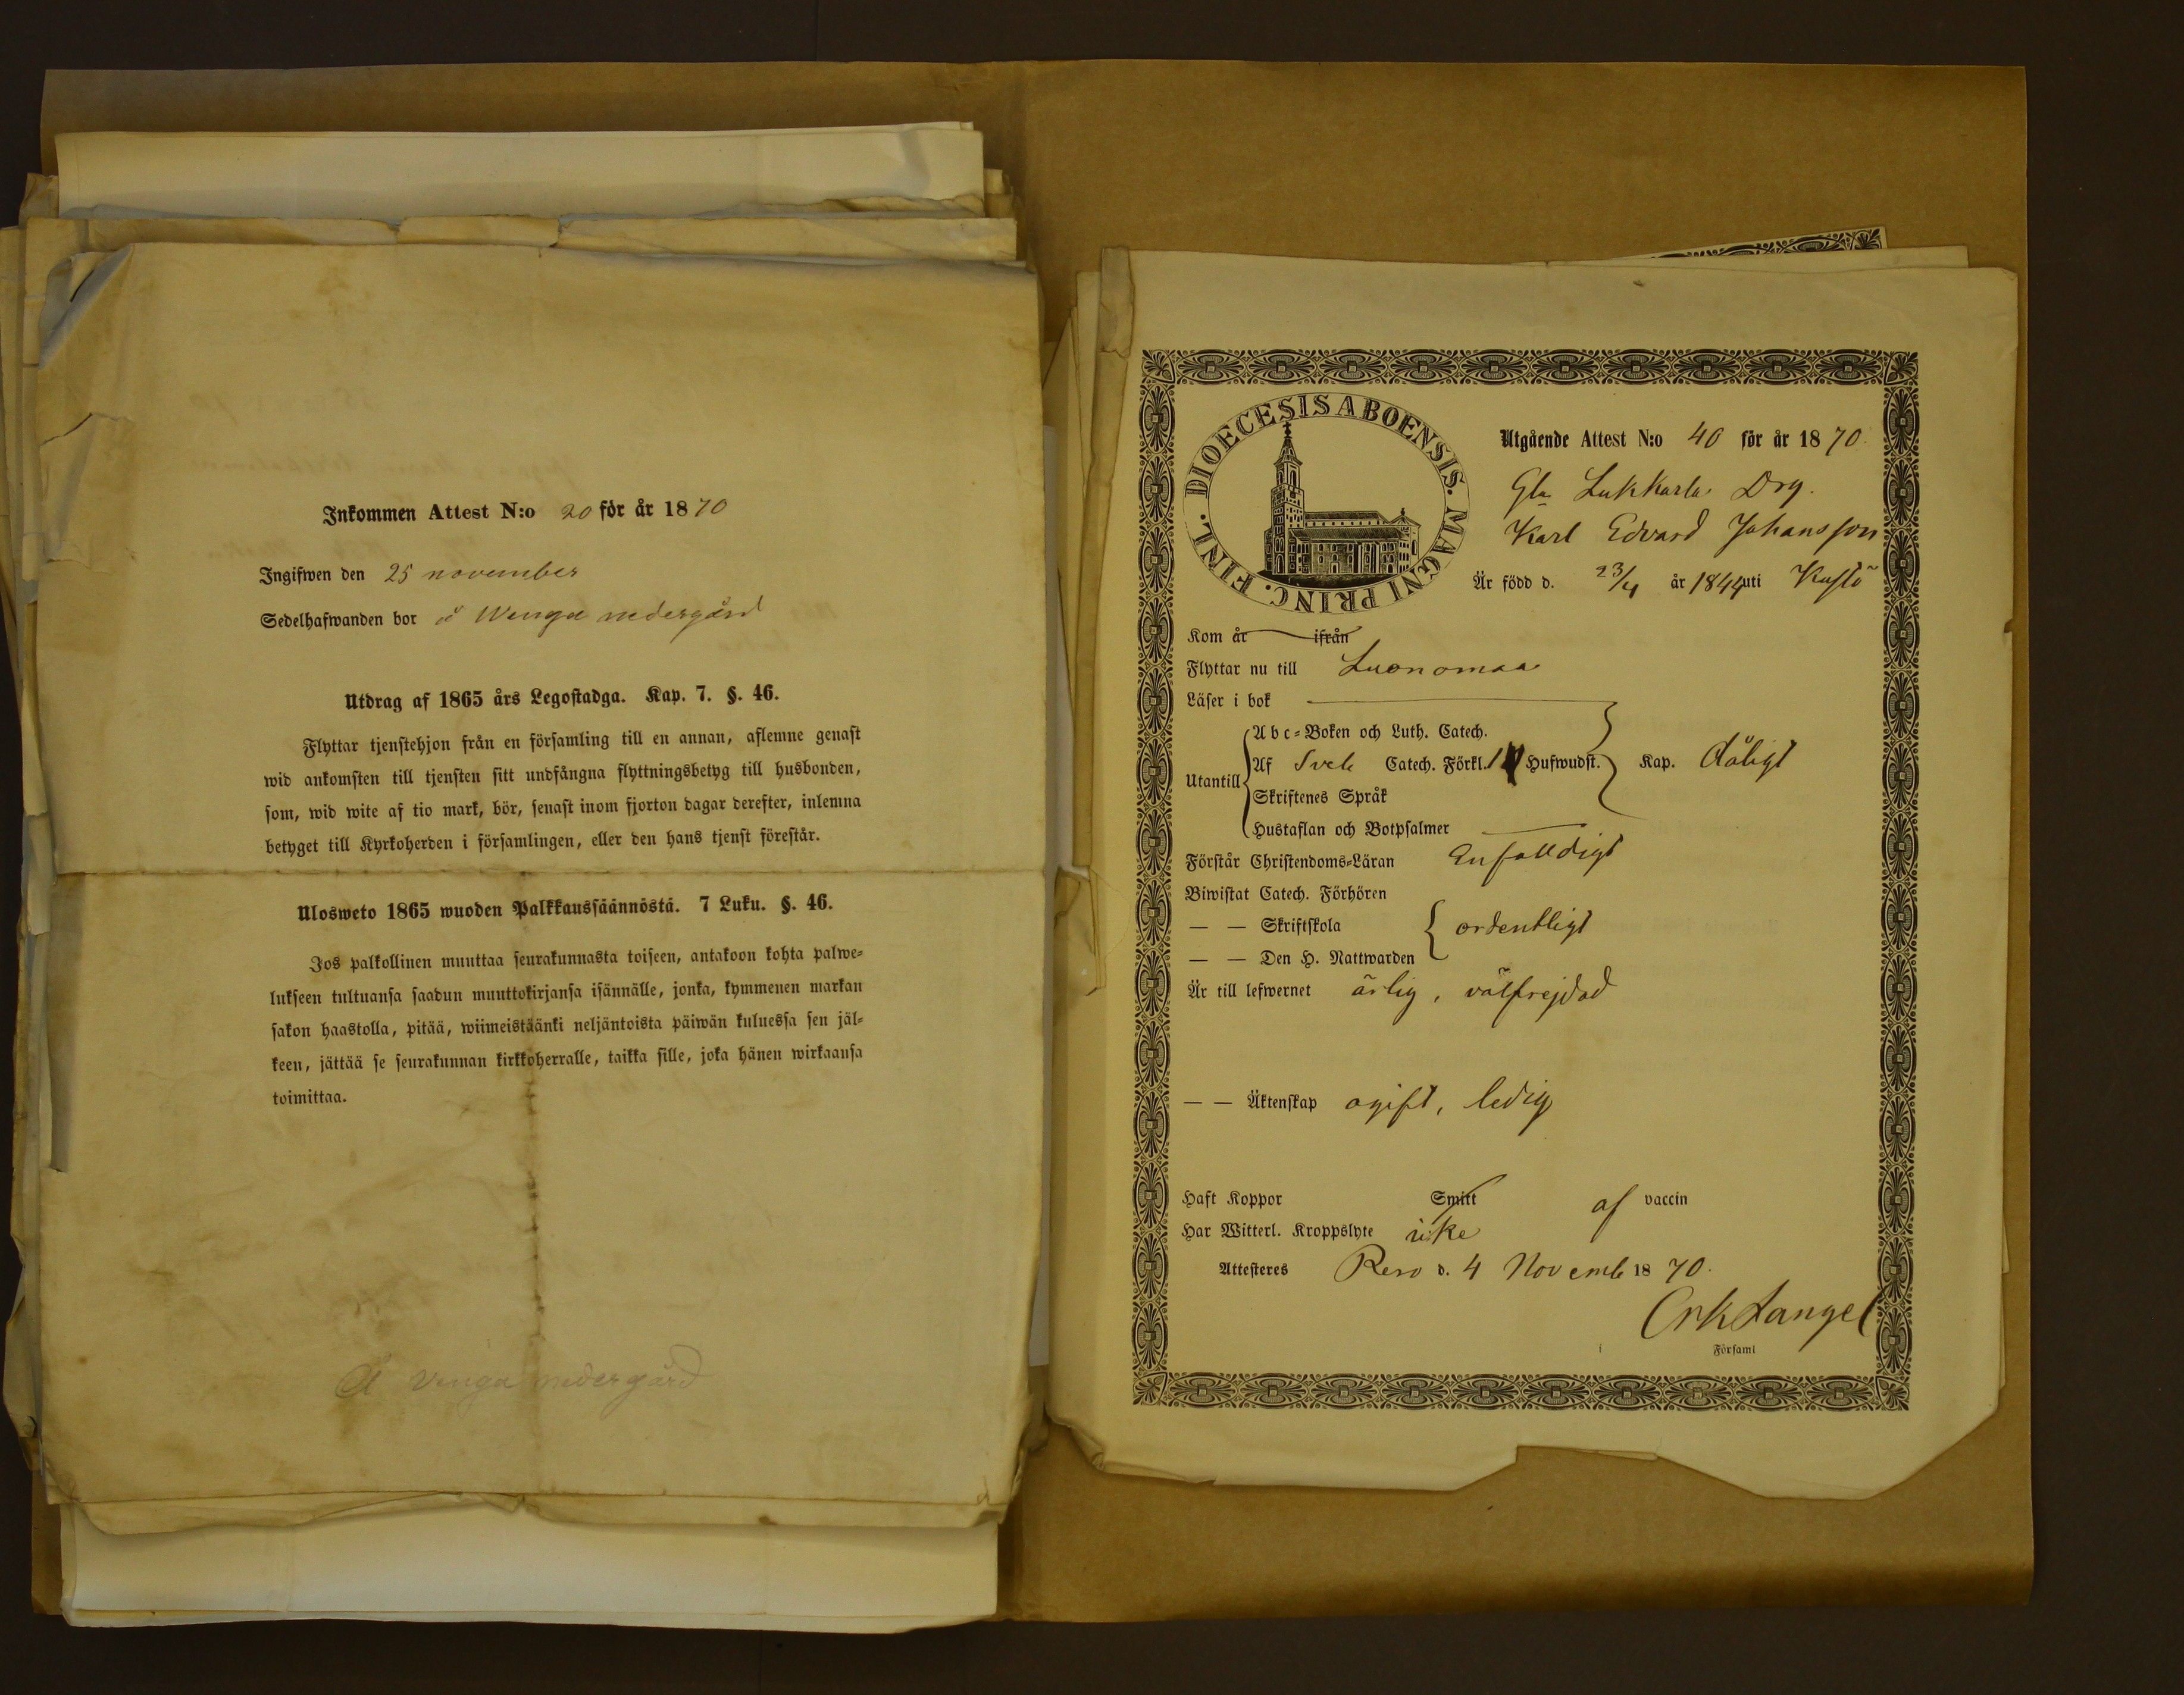 Inkommen Attest N:o 20 för år 1870
Ingifwen den 25 november
Sedelhafwanden bor å Wenga nedergård
Utdrag af 1865 års Legostadga. Kap. 7. §. 46.
Flyttar tjenstehjon från en församling till en annan, aflemne genast
wid ankomsten till tjensten sitt undfångna flyttningsbetyg till husbonden,
som, wid wite af tio mark, bör, senast inom fjorton dagar derefter, inlemna
betyget till Kyrkoherden i församlingen, eller den hans tjenst förestår.
Ulosweto 1865 wuoden Palkkaussäännöstä. 7 Luku. §. 46.
Jos palkollinen muuttaa seurakunnasta toiseen, antakoon kohta palwe-
lukseen tultuansa saadun muuttokirjansa isännälle, jonka, kymmenen markan
sakon haastolla, pitää, wiimeistäänki neljäntoista päiwän kuluessa sen jäl-
keen, jättää se seurakunnan kirkkoherralle, taikka sille, joka hänen wirkaansa
toimittaa.
Å Venga nedergård
DIOECESIS ABOENSIS. MAGNI PRINC. FINL.
Utgående Attest N:o 40 för år 1870.
Gla Lukkarla Drg.
Karl Edvard Johansson
Är född d. 23/4 år 1844 uti Kustö
Kom år ifrån
Flyttar nu till Luonomaa
Läser i bok
Abc-Boken och Luth. Catech.
Utantill Af Sveb Catech. Förkl. Hufwudst. Kap. dåligt
Skriftenes Språk
Hustaflan och Botpsalmer
Förstår Christendoms-Läran Enfalldigt
Biwistat Catech. Förhören
— — Skriftskola ordentligt
— — Den H. Nattwarden
Är till lefwernet ärlig, välfrejdad
— — Äktenskap ogift, ledig
Haft Koppor Smitt af vaccin
Har Witterl. Kroppslyte icke
Attesteres Reso d. 4 Novemb 1870.
Langel
i Församl